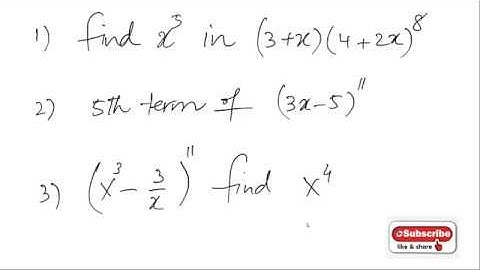 1) find x³ in (3+x)(4+2x)⁸
2) 5th term of (3x-5)¹¹
3) (x³ - 3/x)¹¹ find x⁴
Subscribe
like & share